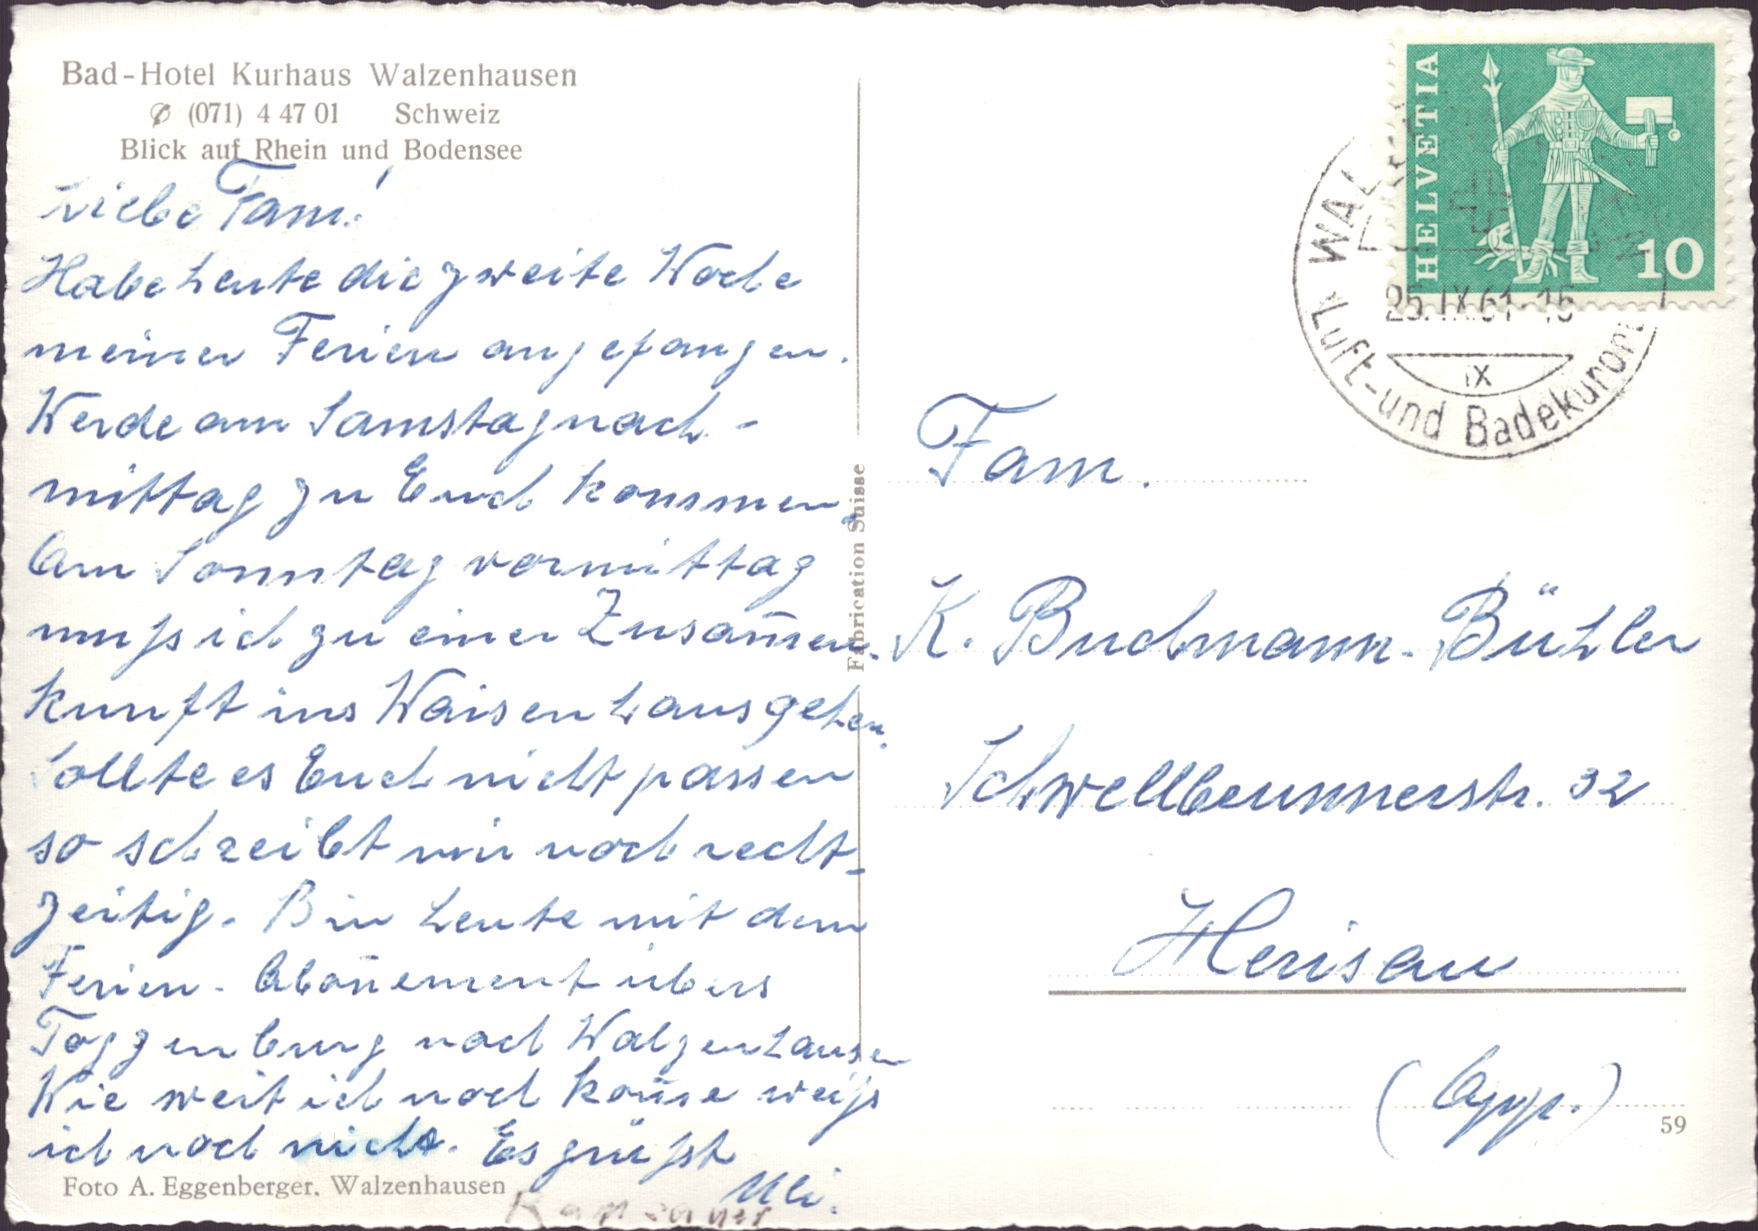 Bad-Hotel Kurhaus Walzenhausen
✆ (071) 4 47 01 Schweiz
Blick auf Rhein und Bodensee
Liebe Fam!
Habe heute die zweite Woche
meiner Ferien angefangen.
Werde am Samstagnach-
mittag zu Euch kommen.
Am Sonntag vormittag
muss ich zu einer Zusam̄en-
kunft ins Waisenhaus gehen.
Sollte es Euch nicht passen
so schreibt mir noch recht-
zeitig. Bin heute mit dem
Ferien-Abon̄ement übers
Toggenburg nach Walzenhausen
Wie weit ich noch kom̄e weiss
ich noch nicht. Es grüsst
Ueli.
Foto A. Eggenberger, Walzenhausen
Fabrication Suisse
HELVETIA
10
25.IX.61-16
IX
Luft-und Badekurort
Fam.
K. Buchmann-Bühler
Schwellbrunnerstr. 32
Herisau
(App.)
59